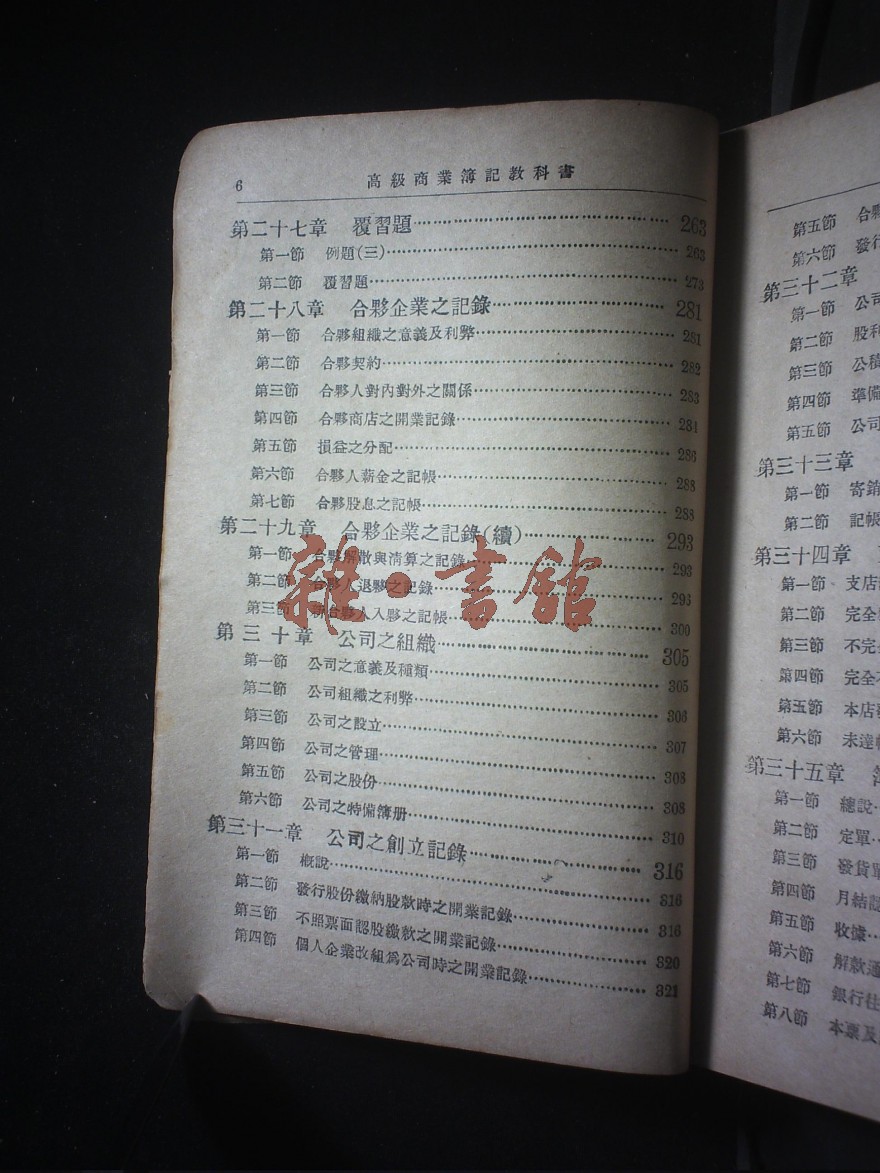 6 高級商業簿記教科書
第二十七章 覆習題 263
第一節 例題(三) 263
第二節 覆習題 273
第二十八章 合夥企業之記錄 281
第一節 合夥組織之意義及利弊 281
第二節 合夥契約 282
第三節 合夥人對內對外之關係 283
第四節 合夥商店之開業記錄 284
第五節 損益之分配 286
第六節 合夥人薪金之記帳 288
第七節 合夥股息之記帳 288
第二十九章 合夥企業之記錄(續) 293
第一節 合夥解散與清算之記錄 293
第二節 合夥人退夥之記錄 293
第三節 新合夥人入夥之記帳 300
第三十章 公司之組織 305
第一節 公司之意義及種類 305
第二節 公司組織之利弊 306
第三節 公司之設立 307
第四節 公司之管理 308
第五節 公司之股份 308
第六節 公司之特備簿册 310
第三十一章 公司之創立記錄 316
第一節 概說 316
第二節 發行股份繳納股款時之開業記錄 316
第三節 不照票面認股繳款之開業記錄 320
第四節 個人企業改組爲公司時之開業記錄 321
雜·書館
第五節 合夥
第六節 發行
第三十二章
第一節 公司
第二節 股利
第三節 公積
第四節 準備
第五節 公司
第三十三章
第一節 寄銷
第二節 記帳
第三十四章
第一節 支店
第二節 完全
第三節 不完全
第四節 完全
第五節 本店
第六節 未達帳
第三十五章
第一節 總說
第二節 定單
第三節 發貨單
第四節 月結
第五節 收據
第六節 解款通
第七節 銀行往
第八節 本票及